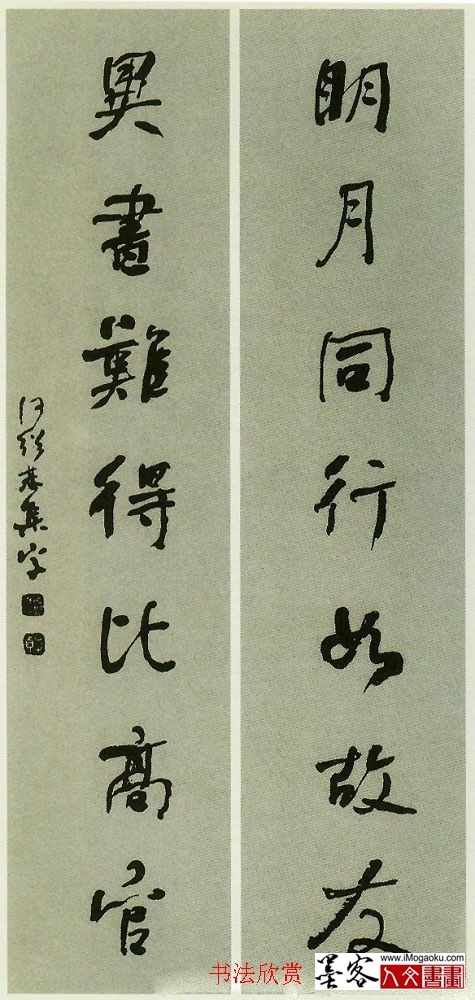 明月同行如故友
異書難得比高官
何紹基集字
書法欣赏
墨客
www.iMogaoku.com
人文書畫